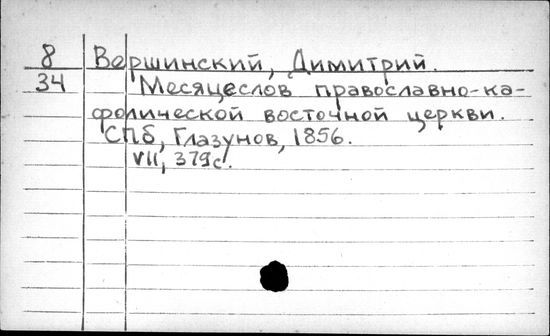 8 Вершинский, Димитрий.
34 Месяцеслов православно-ка-
фолической восточной церкви.
СПб, Глазунов, 1856.
VII, 379с.